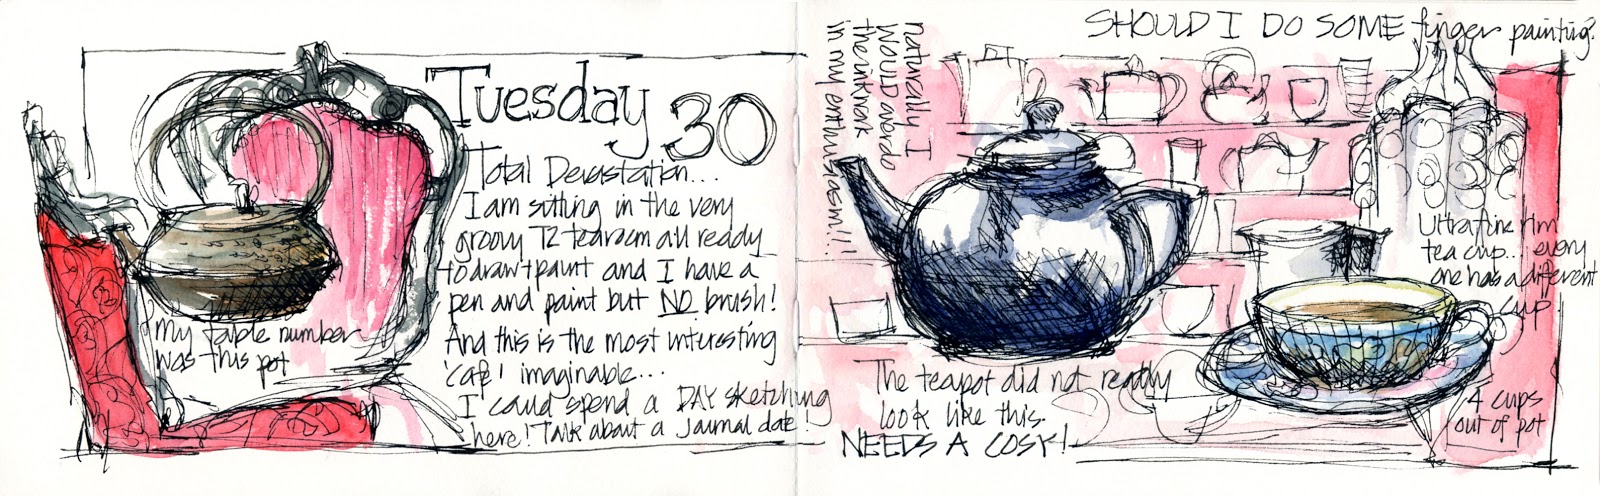 Tuesday 30
Total Devastation...
I am sitting in the very
groovy T2 tearoom all ready
to draw+paint and I have a
pen and paint but NO brush!
And this is the most interesting
'café' imaginable...
I could spend a DAY sketching
here! Talk about a Journal date!
My table number
was this pot
naturally I
WOULD overdo
the inkwork
in my enthusiasm!!
SHOULD I DO SOME finger painting?
Ultra fine rim
tea cup... every
one has a different
cup!
The teapot did not really
look like this.
NEEDS A COSY!
4 cups
out of pot